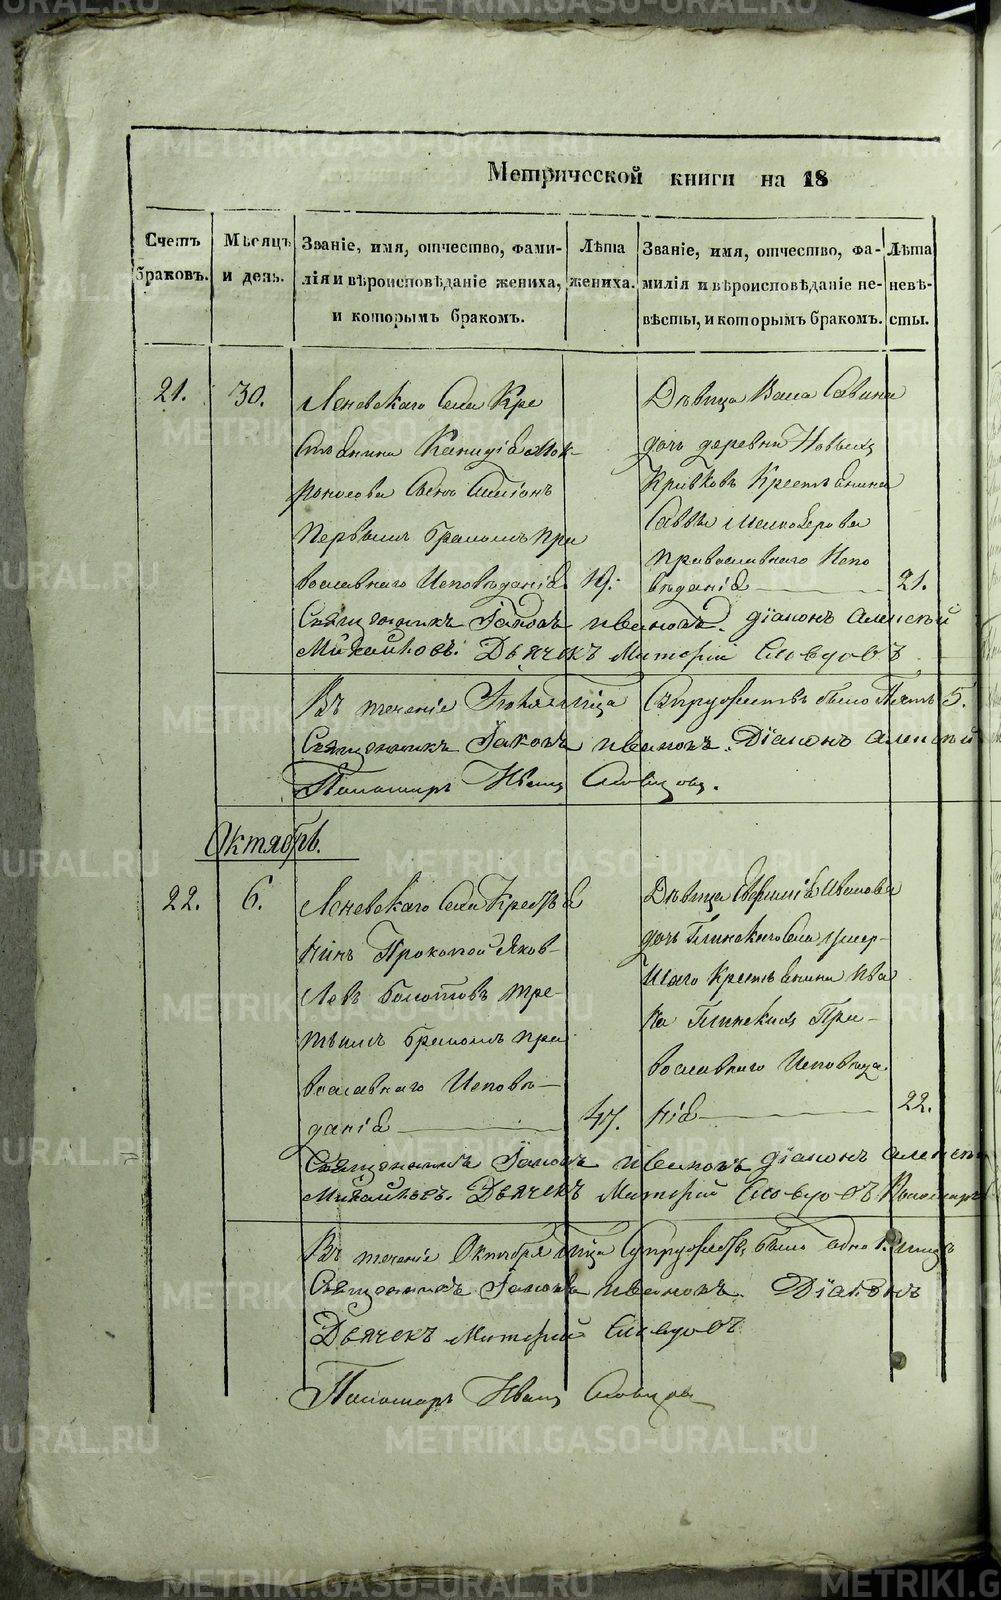 Метрической книги на 18
Счетъ браковъ.
Мѣсяцъ и день.
Званіе, имя, отчество, фами-
лія и вѣроисповѣданіе жениха,
и которымъ бракомъ.
Лѣта
жениха.
Званіе, имя, отчество, фа-
милія и вѣроисповѣданіе не-
вѣсты, и которымъ бракомъ.
Лѣта
невѣ-
сты.
21.
30.
Леневскаго Села Кре
стьянина
сынъ
первымъ бракомъ пра
вославнаго исповѣданія 19.
Дѣвица Васса Савина
дочь деревни Новыхъ
Кривковъ Крестьянина
Саввы
православнаго испо
вѣданія 21.
Священникъ Іаковъ Ивановъ. Діаконъ Алексѣй
Михайловъ. Дьячекъ Митрофй Словцовъ
Въ теченіе мѣсяца Супружествъ было пять 5.
Священникъ Іаковъ Ивановъ. Діаконъ Алексѣй
Пономарь Иванъ Словцовъ.
Октябрь.
22.
6.
Леневскаго Села Крестья
нинъ Прокопій Яков-
левъ Болотовъ тре-
тьимъ бракомъ пра
вославнаго исповѣ-
данія 47.
Дѣвица Иванова
дочь Глинскаго села умер-
шаго Крестьянина Ива
на Глинскихъ Пра-
вославнаго исповѣда
нія 22.
Священникъ Іаковъ Ивановъ Діаконъ Алексѣй
Михайловъ. Дьячекъ Словцовъ Пономарь
Въ теченіе Октября мѣсяца Супружествъ было одно 1.
Священникъ Іаковъ Ивановъ. Діаконъ
Дьячекъ Словцовъ
Пономарь Иванъ Словцовъ
METRIKI.GASO-URAL.RU